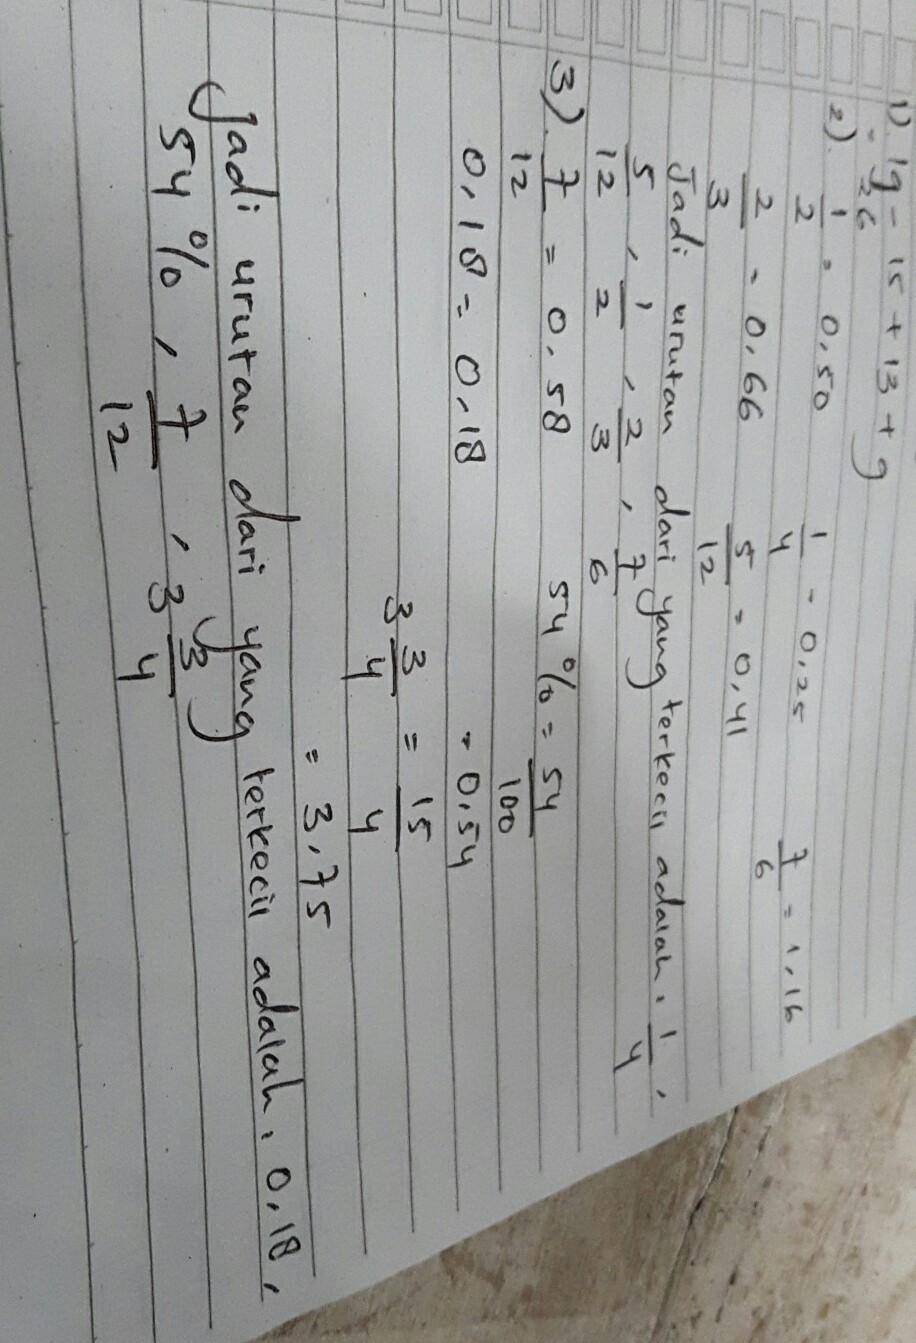 1) 19 - 15 + 13 + 9
= 26
2) 1/2 = 0,50   1/4 = 0,25   7/6 = 1,16
2/3 = 0,66   5/12 = 0,41
Jadi urutan dari yang terkecil adalah, 1/4,
5/12, 1/2, 2/3, 7/6
3) 7/12 = 0,58   54 % = 54/100
0,18 = 0,18   = 0,54
3 3/4 = 15/4
= 3,75
Jadi urutan dari yang terkecil adalah, 0,18,
54 %, 7/12, 3 3/4